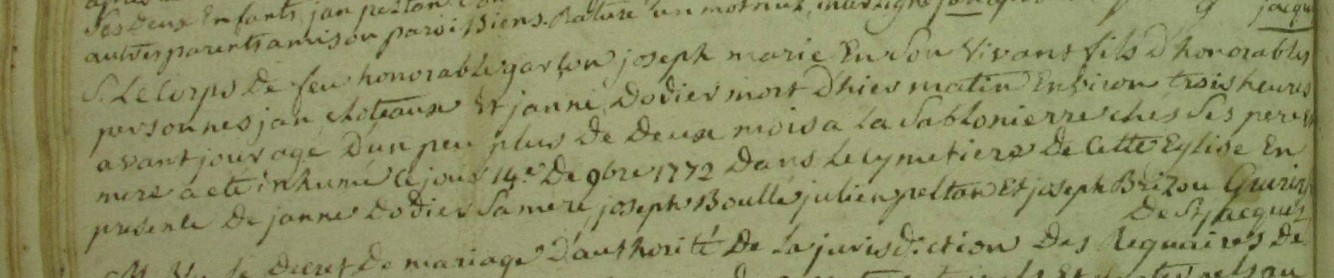 Ses deux Enfants, jan pelton
autres parents amis ou paroissiens. Rature un mot nul, interligne
jacqu
S. Le Corps De feu honorable garson joseph marie En son Vivant fils D'honorables
personnes jan choteaux Et janne Dodier mort Dhier matin Environ trois heures
avant jour age D'un peu plus De Deux mois a La Sablonierre ches Ses pere et
mere a ete inhumé Ce jour 14e De 9bre 1772 Dans Le Cymetiere De Cette Eglise En
presente De janne Dodier Sa mere joseph Boulle julien pelton Et joseph Brizou
De St jacques
Vu Le Decret De mariage D'authorité De La jurisdiction Des Reguaires De